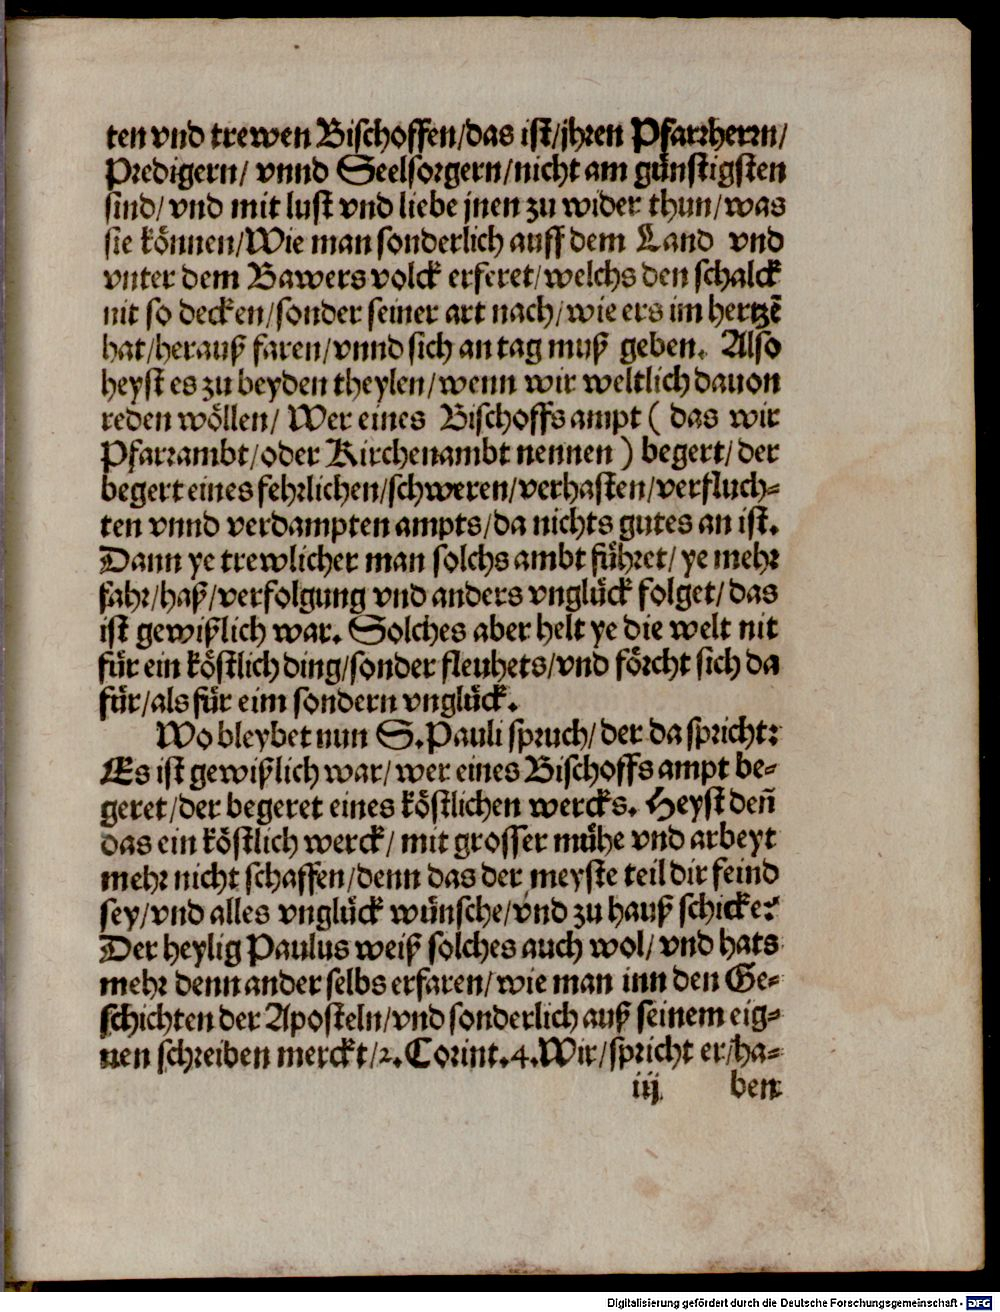 ten vnd trewen Bischoffen/das ist/jhren Pfarrherrn/
Predigern/ vnnd Seelsorgern/nicht am günstigsten
sind/ vnd mit lust vnd liebe jnen zu wider thun/was
sie können/Wie man sonderlich auff dem Land vnd
vnter dem Bawers volck erferet/welchs den schalck
nit so decken/sonder seiner art nach/wie ers im hertzẽ
hat/herauß faren/vnnd sich an tag muß geben. Also
heyst es zu beyden theylen/wenn wir weltlich dauon
reden wöllen/ Wer eines Bischoffs ampt ( das wir
Pfarrambt/oder Kirchenambt nennen ) begert/ der
begert eines fehrlichen/schweren/verhasten/verfluch-
ten vnnd verdampten ampts/da nichts gutes an ist.
Dann ye trewlicher man solchs ambt führet/ ye mehr
fahr/haß/verfolgung vnd anders vnglück folget/das
ist gewißlich war. Solches aber helt ye die welt nit
für ein köstlich ding/sonder fleuhets/vnd förcht sich da
für/als für eim sondern vnglück.
Wo bleybet nun S.Pauli spruch/ der da spricht:
Es ist gewißlich war/ wer eines Bischoffs ampt be-
geret/der begeret eines köstlichen wercks. Heyst deñ
das ein köstlich werck/ mit grosser mühe vnd arbeyt
mehr nicht schaffen/denn das der meyste teil dir feind
sey/vnd alles vnglück wünsche/vnd zu hauß schicke?
Der heylig Paulus weiß solches auch wol/ vnd hats
mehr denn ander selbs erfaren/wie man inn den Ge-
schichten der Aposteln/vnd sonderlich auß seinem eig-
nen schreiben merckt/2.Corint.4.Wir/spricht er/ha-
iij ben
Digitalisierung gefördert durch die Deutsche Forschungsgemeinschaft - DFG